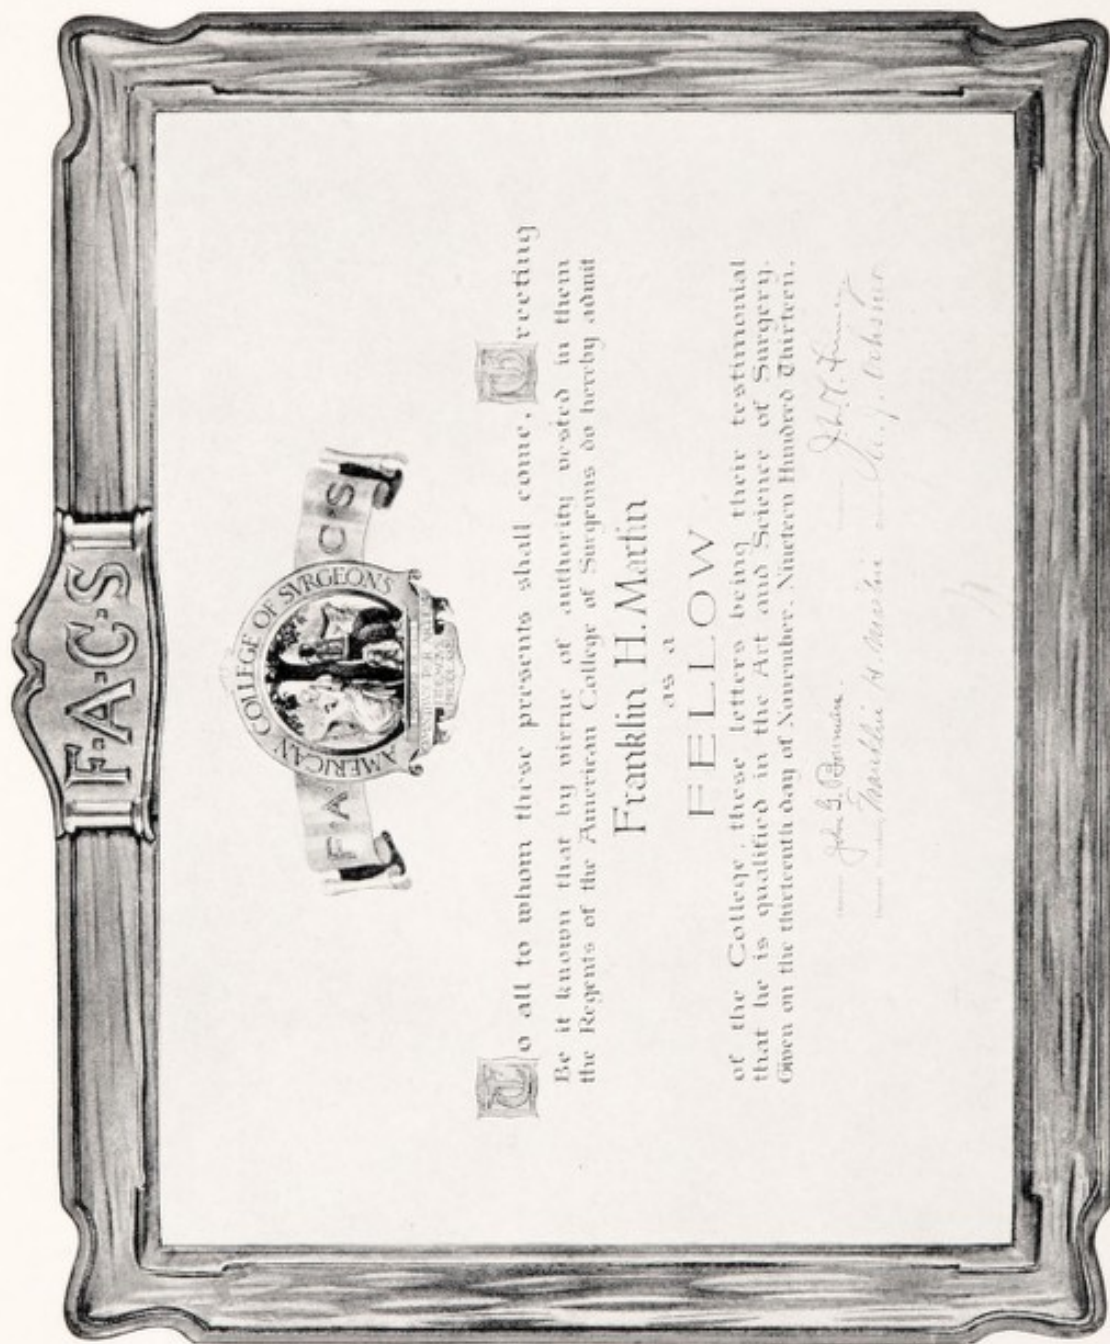 F·A·C·S
AMERICAN COLLEGE OF SVRGEONS
F·A·C·S
To all to whom these presents shall come, Greeting
Be it known that by virtue of authority vested in them
the Regents of the American College of Surgeons do hereby admit
Franklin H. Martin
as a
FELLOW
of the College, these letters being their testimonial
that he is qualified in the Art and Science of Surgery.
Given on the thirteenth day of November, Nineteen Hundred Thirteen.
John G. Bowman. J.M.T. Finney
Franklin H Martin A. J. Ochsner